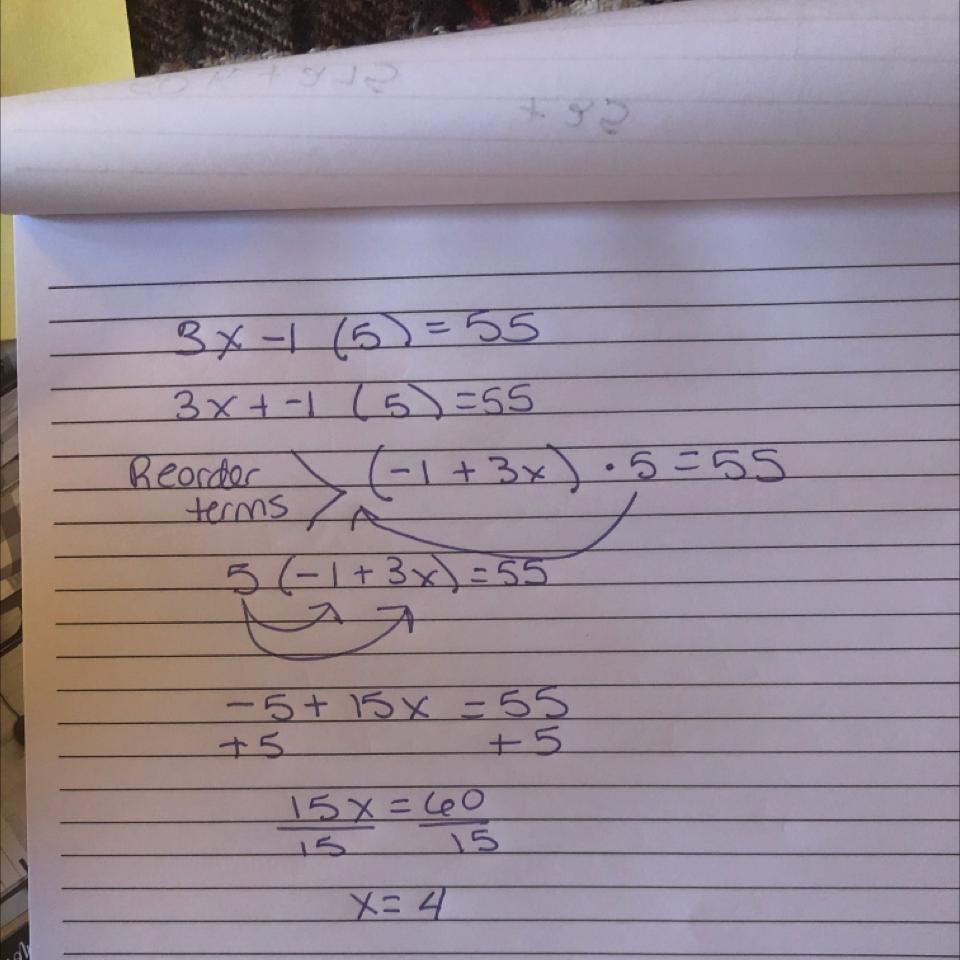 3x -1 (5) = 55
3x + -1 (5) = 55
Reorder terms > (-1 + 3x) · 5 = 55
5 (-1 + 3x) = 55
-5 + 15x = 55
+5 +5
15x = 60
15 15
x = 4